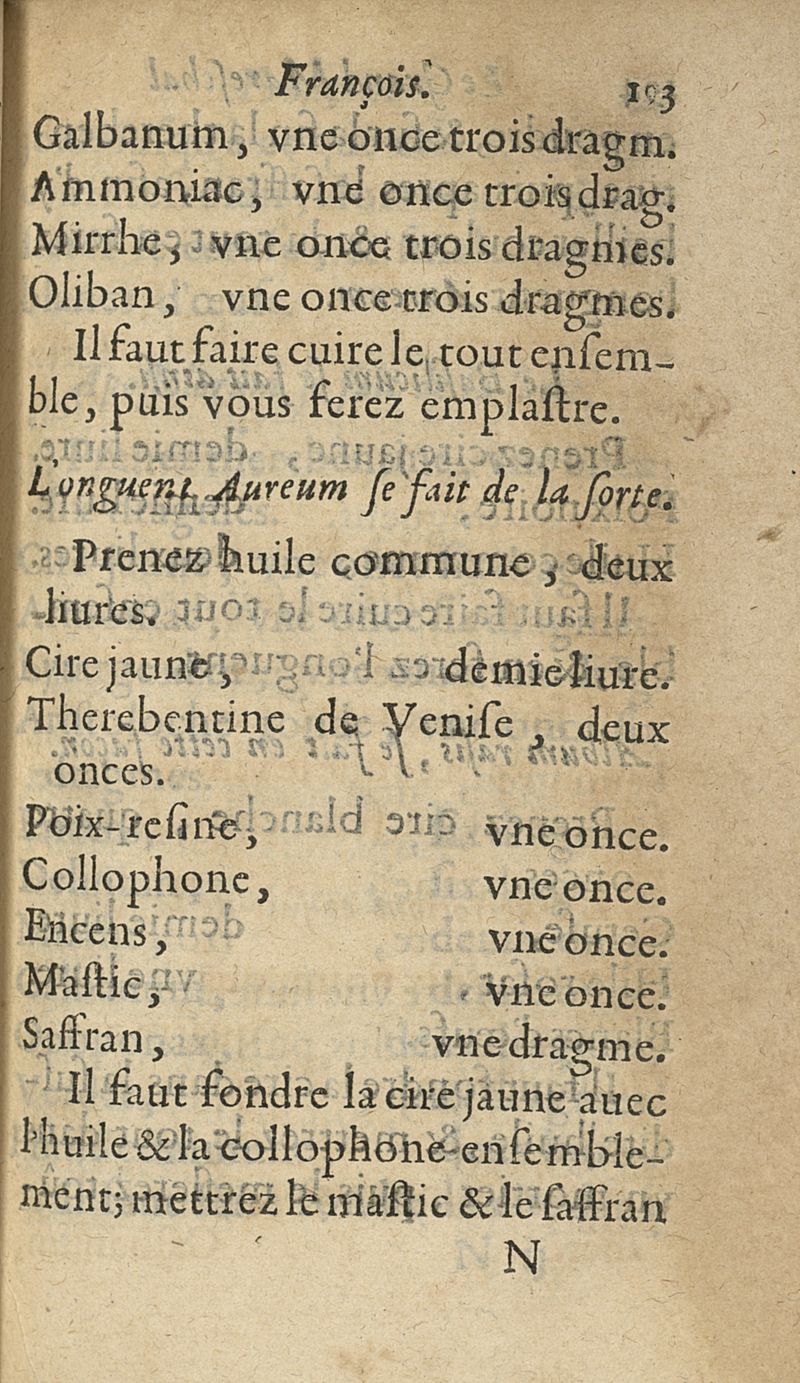 François.
193
Galbanum, vne once trois dragm.
Ammoniac, vne once trois drag.
Mirrhe, vne once trois dragmes.
Oliban, vne once trois dragmes.
Il faut faire cuire le tout enſem-
ble, puis vous ferez emplaſtre.
L'onguent Aureum ſe fait de la ſorte.
Prenez huile commune, deux
liures.
Cire jaune, demie liure.
Therebentine de Veniſe, deux
onces.
Poix-reſine, vne once.
Collophone, vne once.
Encens, vne once.
Maſtic, vne once.
Saffran, vne dragme.
Il faut fondre la cire jaune auec
l'huile & la collophone enſemble-
ment; mettrez le maſtic & le ſaffran
N